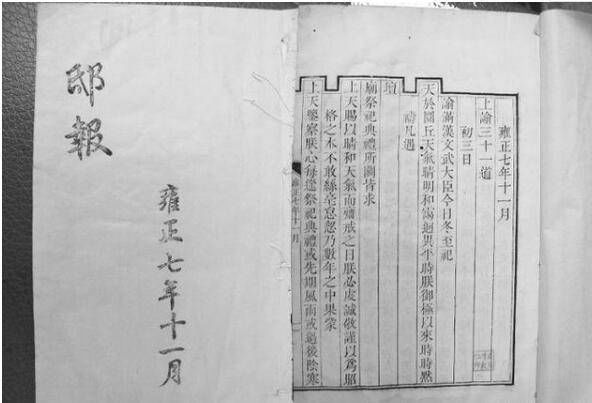 邸報
雍正七年十一月
雍正七年十一月
上諭三十一道
初三日
諭滿漢文武大臣今日冬至祀
天於圜丘天氣晴明和煖迥異平時朕御極以來時時默
禱凡遇
壇
廟祭祀典禮所關皆求
上天賜以晴和天氣而齋戒之日朕必虔誠敬謹以為昭
格之本不敢絲毫怠忽乃數年之中果蒙
上天鑒察朕心每逢祭祀典禮或先期風雨或過後陰寒
正七年十一月